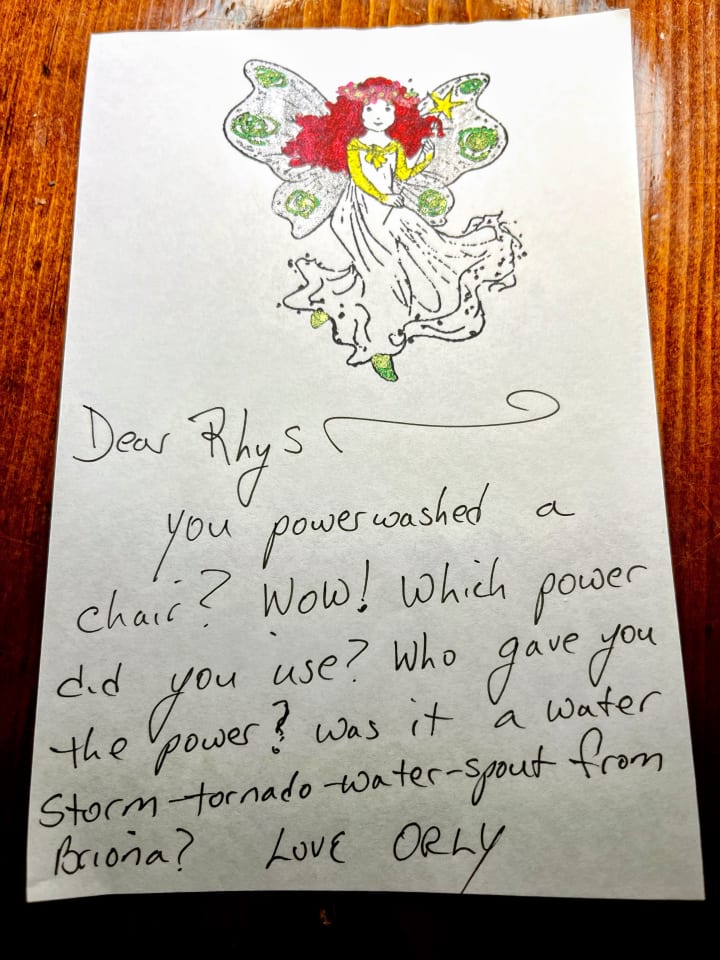 Dear Rhys
you powerwashed a
chair? Wow! Which power
did you use? Who gave you
the power? was it a water
Storm-tornado-water-spout from
Briona? LOVE ORLY